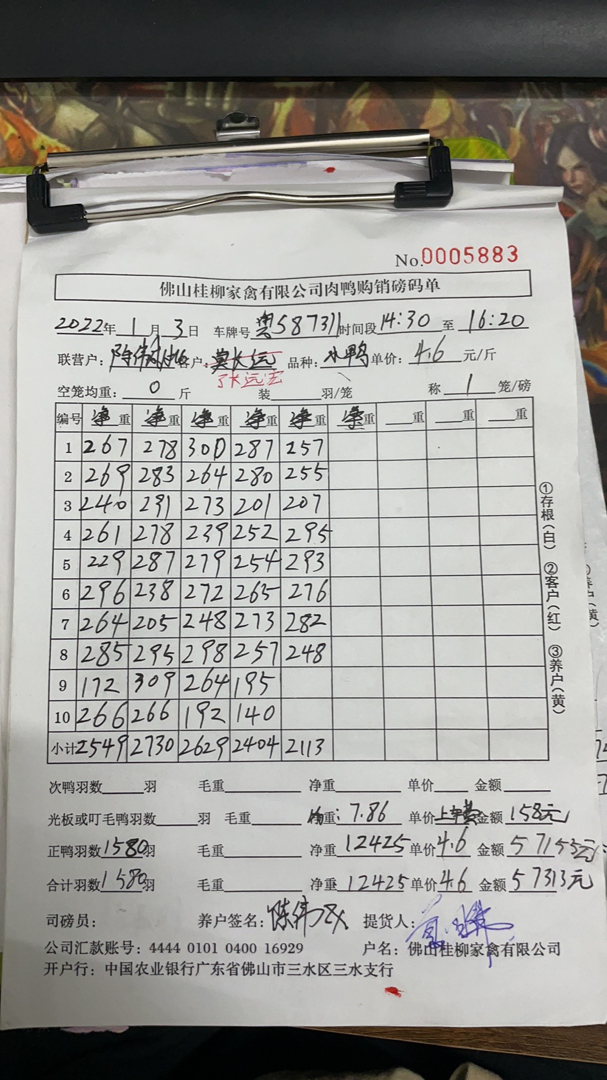 No.0005883
佛山桂柳家禽有限公司肉鸭购销磅码单
2022年 1月 3日 车牌号 粤587311 时间段 14:30 至 16:20
联营户: 客户: 莫长远 品种: 水鸭 单价: 4.6 元/斤
空笼均重: 0 斤 装 羽/笼 称 1 笼/磅
编号 净重 净重 净重 净重 净重 净重 重 重 重
1 267 278 300 287 257
2 269 283 264 280 255
3 240 291 273 201 207
4 261 278 239 252 295
5 229 287 279 254 293
6 296 238 272 265 276
7 264 205 248 273 282
8 285 295 298 257 248
9 172 309 264 195
10 266 266 192 140
小计 2549 2730 2629 2404 2113
①存根(白) ②客户(红) ③养户(黄)
次鸭羽数 羽 毛重 净重 单价 金额
光板或叮毛鸭羽数 羽 毛重 均重: 7.86 单价 上车费 金额 158元
正鸭羽数 1580羽 毛重 净重 12425 单价 4.6 金额 57155元
合计羽数 1580羽 毛重 净重 12425 单价 4.6 金额 57313元
司磅员: 养户签名: 陈伟 提货人:
公司汇款账号: 4444 0101 0400 16929 户名: 佛山桂柳家禽有限公司
开户行: 中国农业银行广东省佛山市三水区三水支行